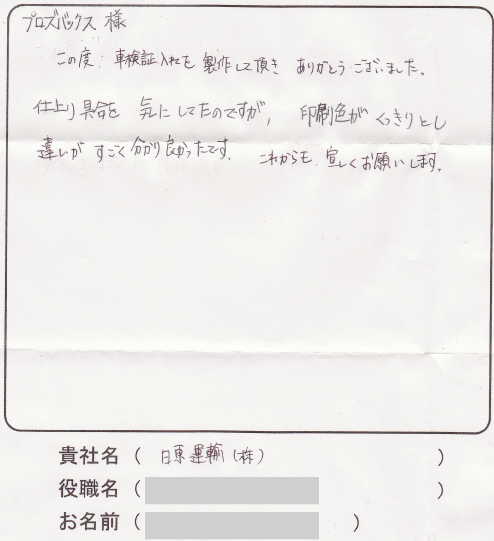 プロズバックス 様
この度、車検証入れを 製作して頂き ありがとうございました。
仕上り具合を 気にしてたのですが、 印刷色が くっきりとし
違いが すごく 分かり良かったです。 これからも 宜しくお願いします。
貴社名 ( 日東運輸(株) )
役職名 ( )
お名前 ( )